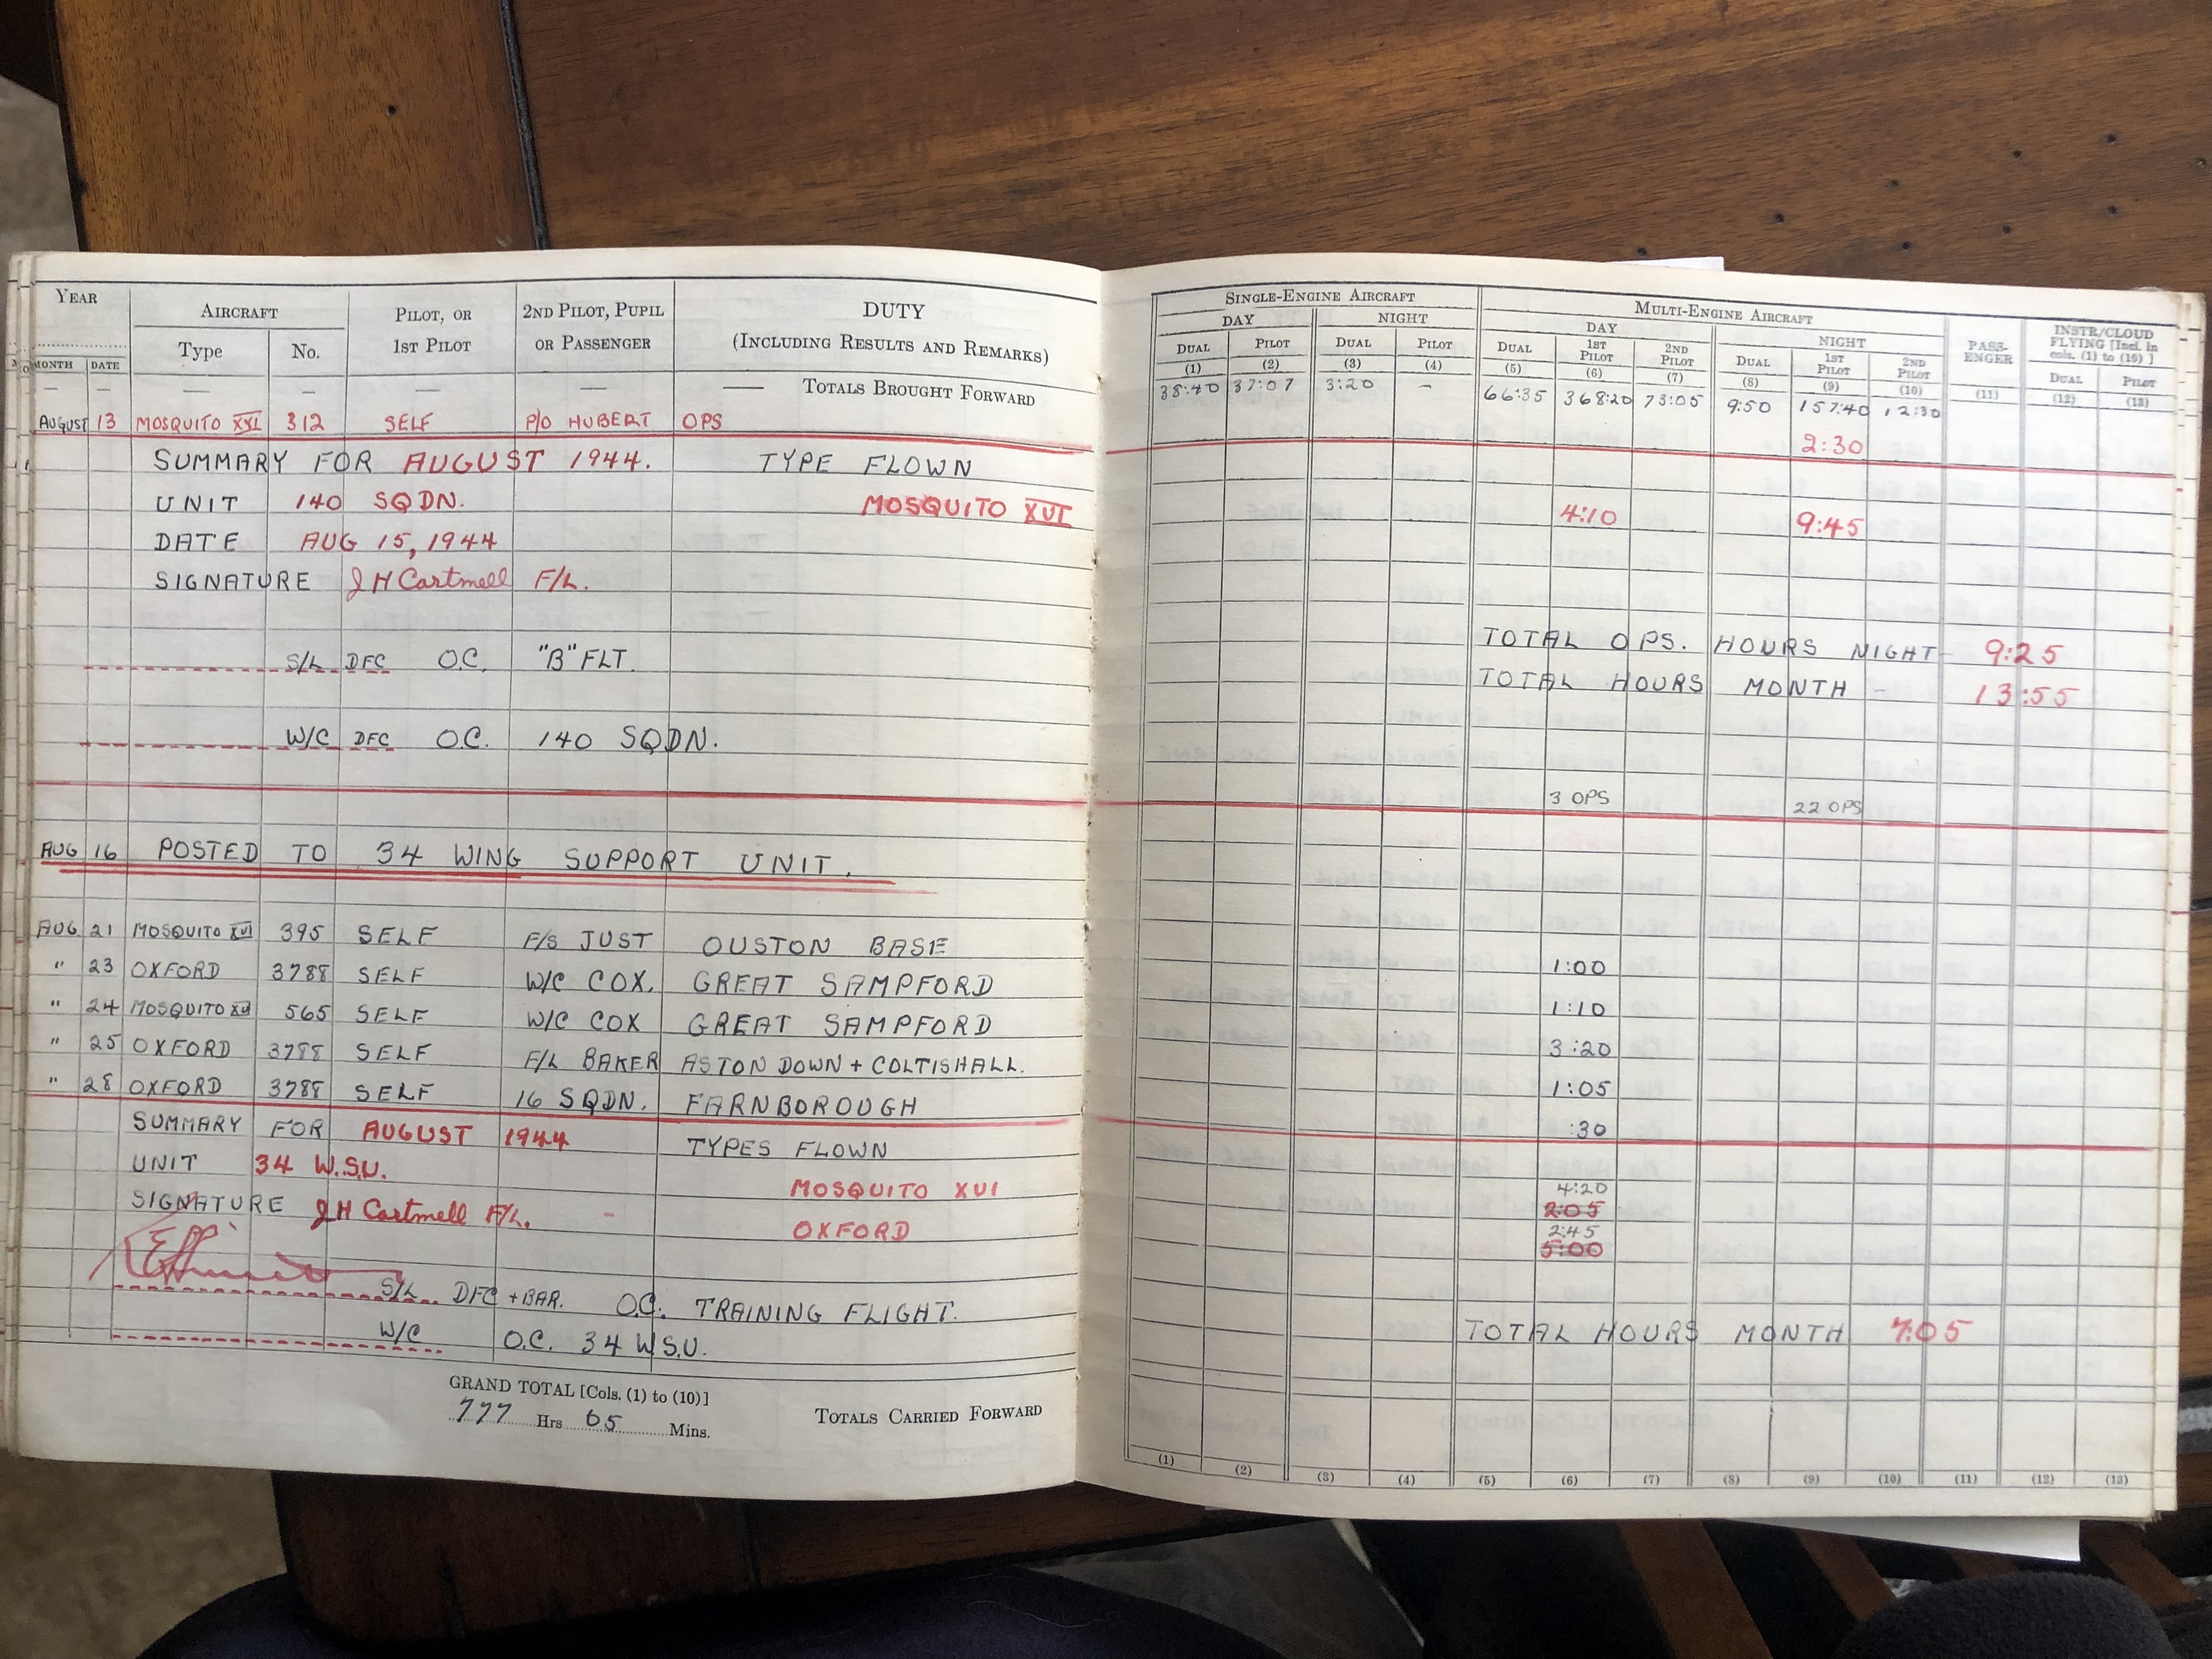 YEAR AIRCRAFT PILOT, OR 1ST PILOT 2ND PILOT, PUPIL OR PASSENGER DUTY (INCLUDING RESULTS AND REMARKS)
MONTH DATE Type No.
— — — — — TOTALS BROUGHT FORWARD
AUGUST 13 MOSQUITO XVI 312 SELF P/O HUBERT OPS
SUMMARY FOR AUGUST 1944. TYPE FLOWN
UNIT 140 SQDN. MOSQUITO XVI
DATE AUG 15, 1944
SIGNATURE J H Cartmell F/L.
S/L DFC O.C. "B" FLT.
W/C DFC O.C. 140 SQDN.
AUG 16 POSTED TO 34 WING SUPPORT UNIT.
AUG 21 MOSQUITO XVI 395 SELF F/S JUST OUSTON BASE
" 23 OXFORD 3788 SELF W/C COX. GREAT SAMPFORD
" 24 MOSQUITO XVI 565 SELF W/C COX GREAT SAMPFORD
" 25 OXFORD 3788 SELF F/L BAKER ASTON DOWN + COLTISHALL.
" 28 OXFORD 3788 SELF 16 SQDN. FARNBOROUGH
SUMMARY FOR AUGUST 1944 TYPES FLOWN
UNIT 34 W.S.U. MOSQUITO XVI
SIGNATURE J H Cartmell F/L. OXFORD
S/L DFC + BAR. O.C. TRAINING FLIGHT.
W/C O.C. 34 W.S.U.
GRAND TOTAL [Cols. (1) to (10)]
777 Hrs 05 Mins. TOTALS CARRIED FORWARD
SINGLE-ENGINE AIRCRAFT MULTI-ENGINE AIRCRAFT PASSENGER INSTR/CLOUD FLYING [Incl. in cols. (1) to (10)]
DAY NIGHT DAY NIGHT
DUAL PILOT DUAL PILOT DUAL 1ST PILOT 2ND PILOT DUAL 1ST PILOT 2ND PILOT DUAL PILOT
(1) (2) (3) (4) (5) (6) (7) (8) (9) (10) (11) (12) (13)
38:40 37:07 3:20 - 66:35 368:20 73:05 9:50 157:40 12:30
2:30
4:10 9:45
TOTAL OPS. HOURS NIGHT- 9:25
TOTAL HOURS MONTH - 13:55
3 OPS 22 OPS
1:00
1:10
3:20
1:05
:30
4:20
2:05
2:45
5:00
TOTAL HOURS MONTH 7:05
(1) (2) (3) (4) (5) (6) (7) (8) (9) (10) (11) (12) (13)